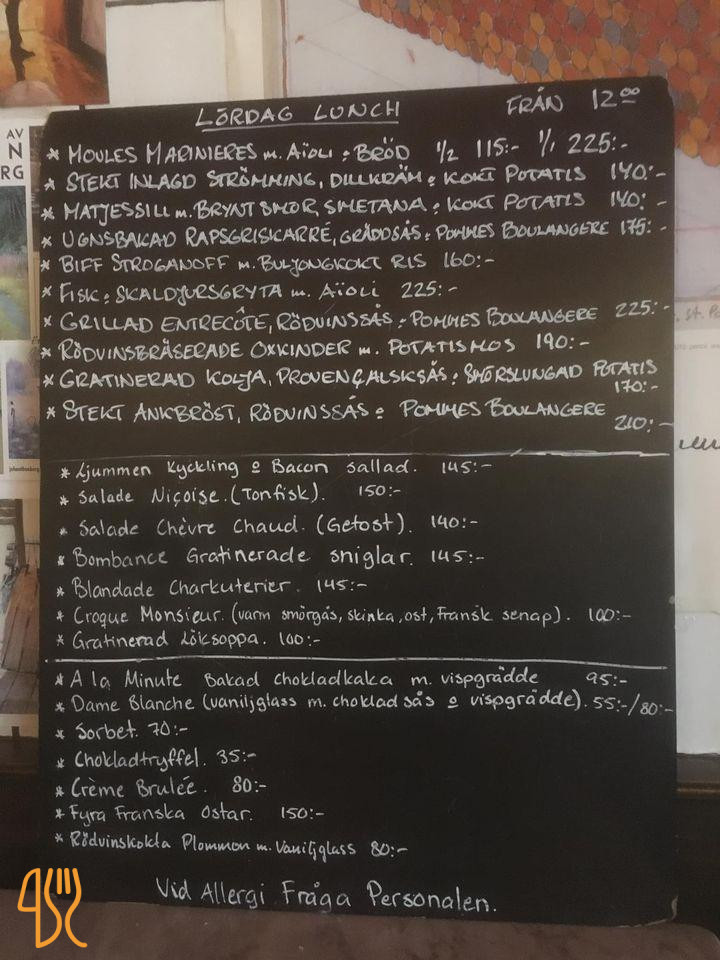 AV
N
RG
LÖRDAG LUNCH FRÅN 12⁰⁰
* MOULES MARINIERES m. AÏOLI o BRÖD 1/2 115:- 1/1 225:-
* STEKT INLAGD STRÖMMING, DILLKRÄM o KOKT POTATIS 140:-
* MATJESSILL m. BRYNT SMÖR, SMETANA o KOKT POTATIS 140:-
* UGNSBAKAD RAPSGRISKARRÉ, GRÄDDSÅS o POMMES BOULANGERE 175:-
* BIFF STROGANOFF m. BULJONGKOKT RIS 160:-
* FISK o SKALDJURSGRYTA m. AÏOLI 225:-
* GRILLAD ENTRECÔTE, RÖDVINSSÅS o POMMES BOULANGERE 225:-
* RÖDVINSBRÄSERADE OXKINDER m. POTATISMOS 190:-
* GRATINERAD KOLJA, PROVENÇALSKSÅS o SMÖRSLUNGAD POTATIS
170:-
* STEKT ANKBRÖST, RÖDVINSSÅS o POMMES BOULANGERE
210:-
* Ljummen Kyckling o Bacon sallad. 145:-
* Salade Niçoise. (Tonfisk). 150:-
* Salade Chèvre Chaud. (Getost). 140:-
* Bombance Gratinerade sniglar. 145:-
* Blandade Charkuterier. 145:-
* Croque Monsieur. (varm smörgås, skinka, ost, fransk senap). 100:-
* Gratinerad Löksoppa. 100:-
* A la Minute Bakad chokladkaka m. vispgrädde 95:-
* Dame Blanche (vaniljglass m. choklad sås o vispgrädde). 55:-/80:-
* Sorbet. 70:-
* Chokladtryffel. 35:-
* Crème Brulée. 80:-
* Fyra Franska Ostar. 150:-
* Rödvinskokta Plommon m. Vaniljglass 80:-
Vid Allergi Fråga Personalen.